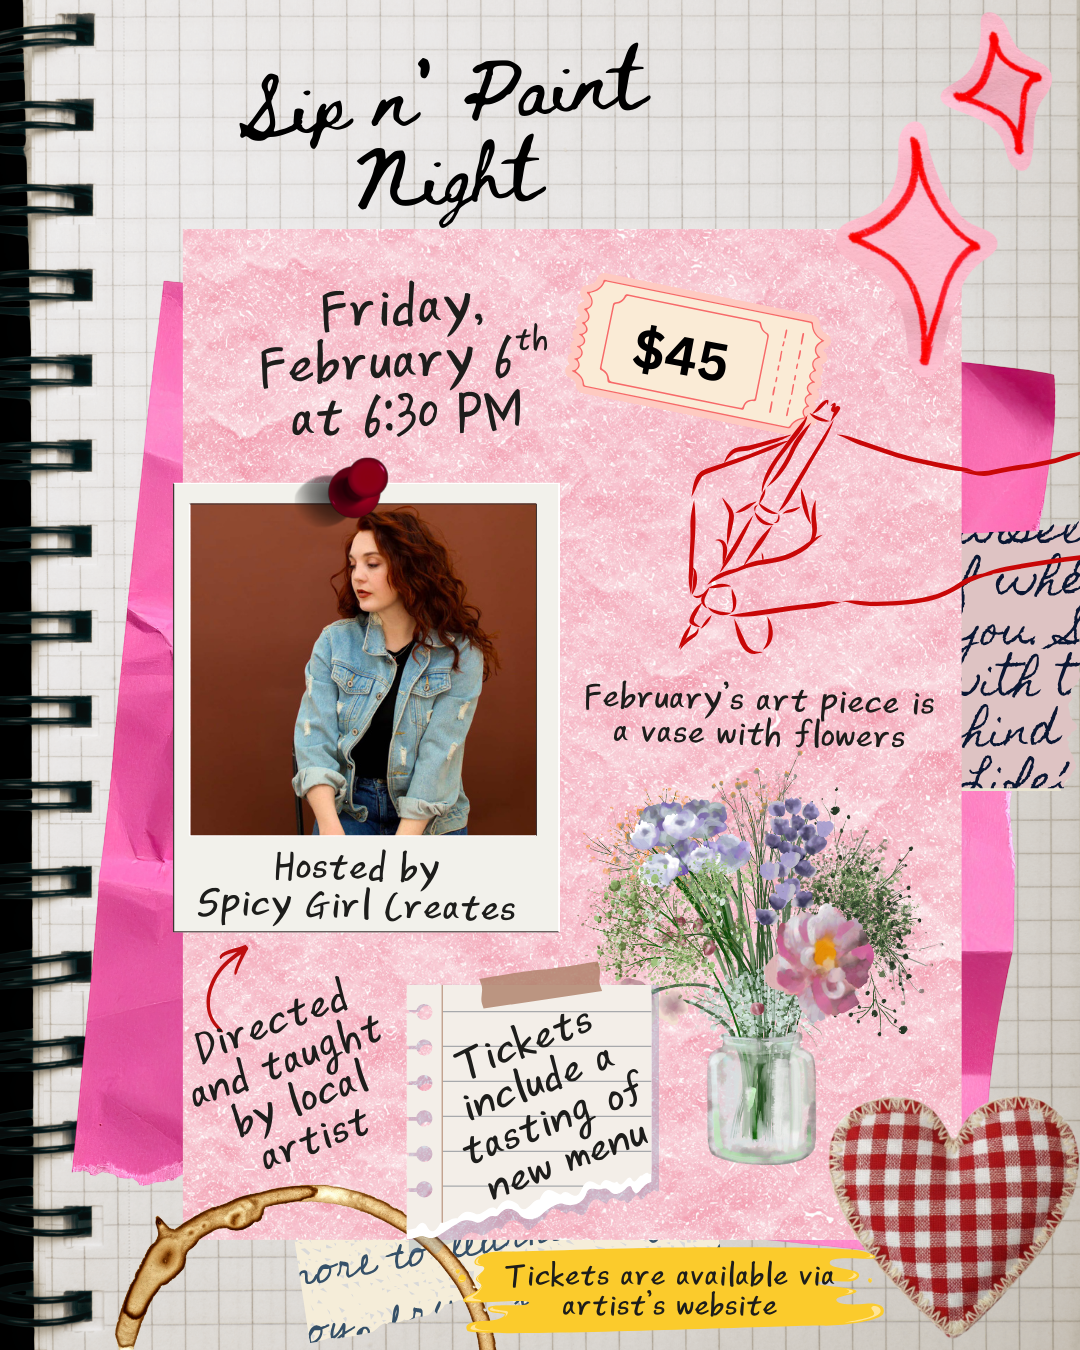 Sip n' Paint
Night
Friday,
February 6th
at 6:30 PM
$45
you. S
with t
hind
February's art piece is
a vase with flowers
Hosted by
Spicy Girl Creates
Directed
and taught
by local
artist
Tickets
include a
tasting of
new menu
more to
Tickets are available via
artist's website